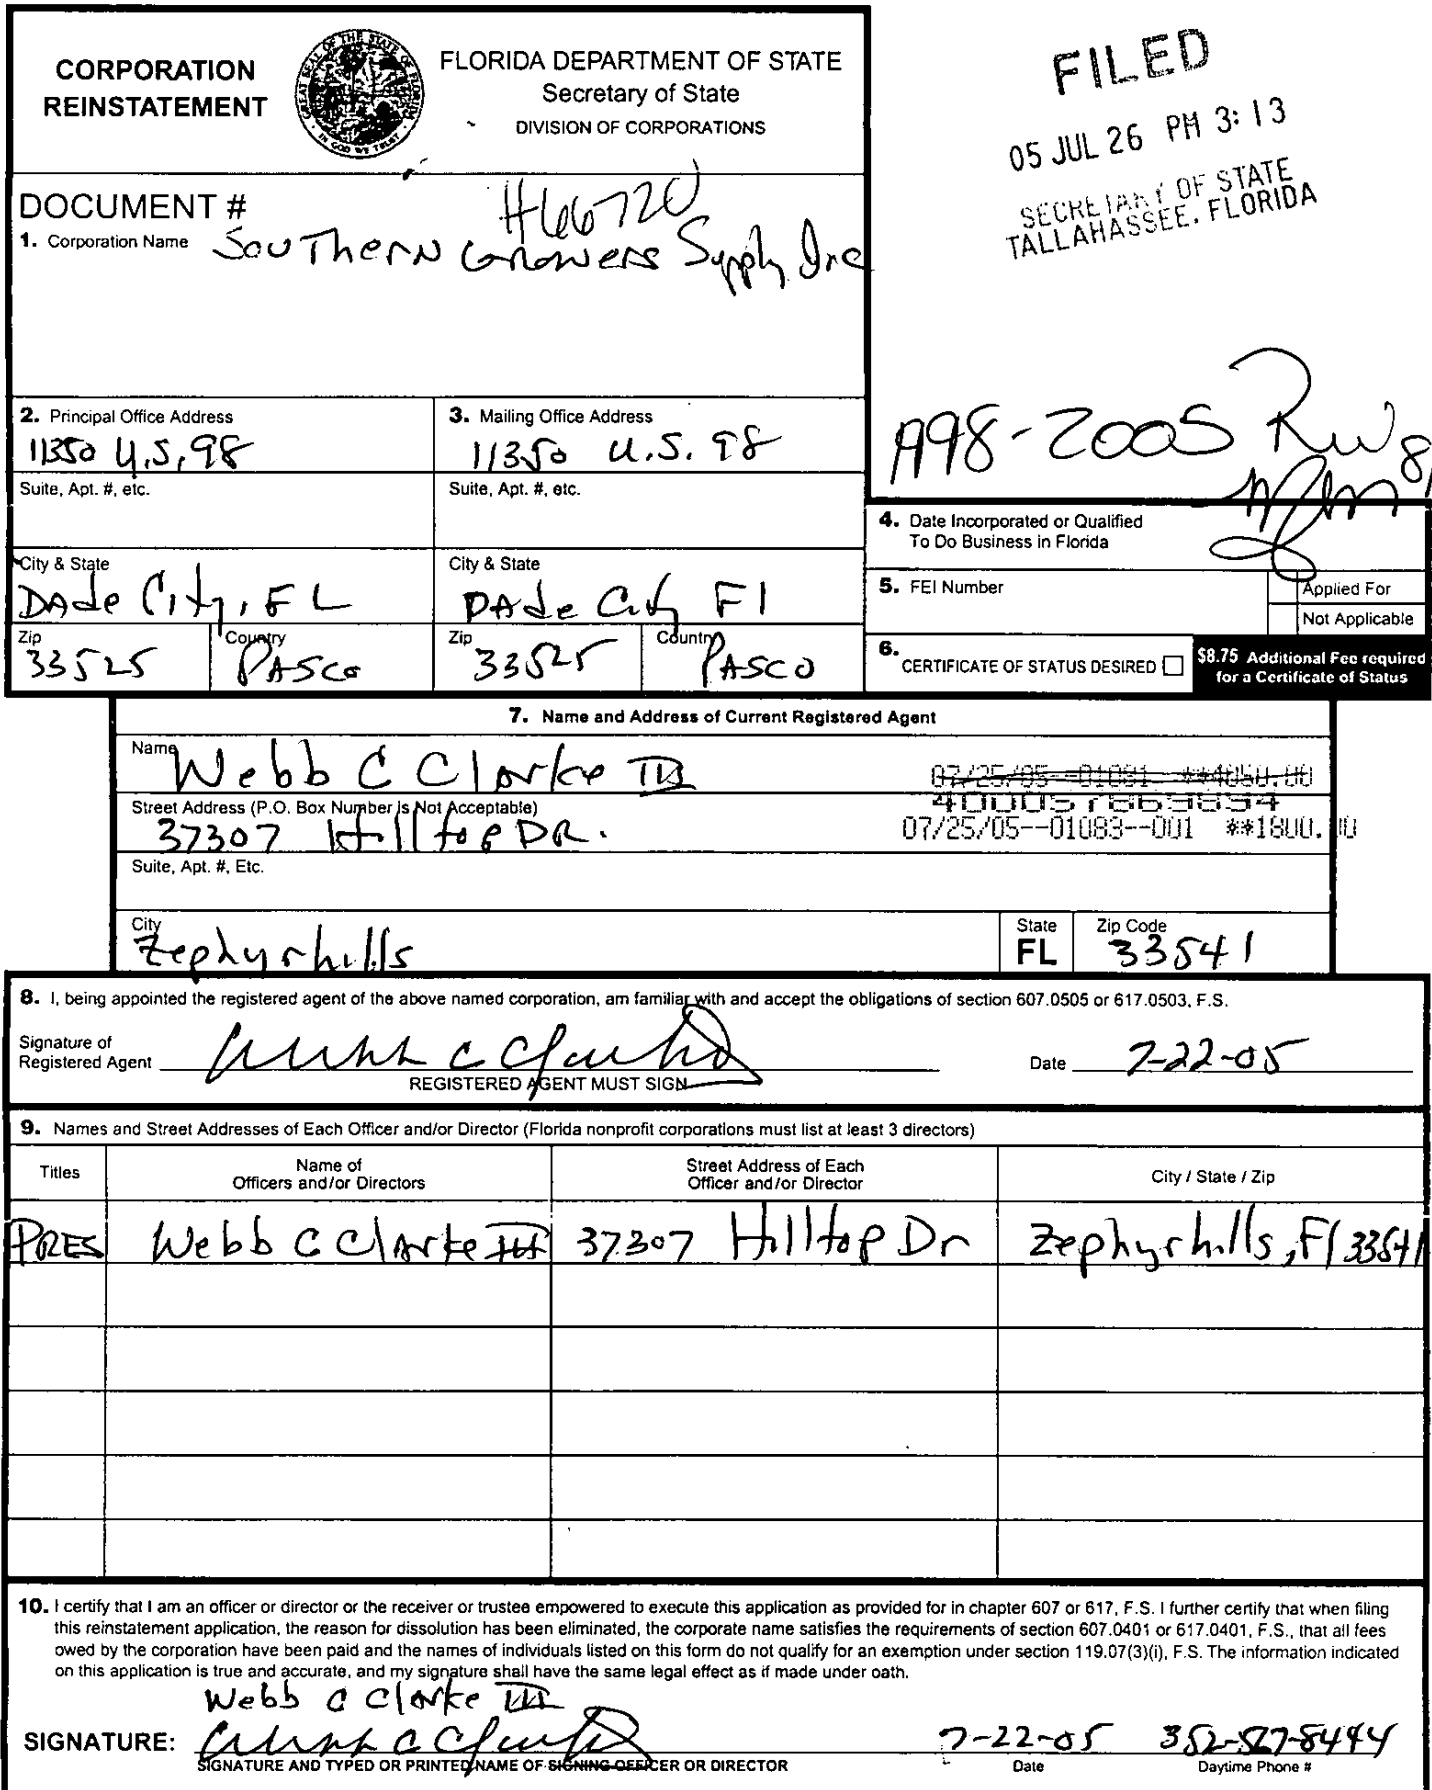 CORPORATION
REINSTATEMENT
GREAT SEAL OF THE STATE OF FLORIDA
IN GOD WE TRUST
FLORIDA DEPARTMENT OF STATE
Secretary of State
DIVISION OF CORPORATIONS
FILED
05 JUL 26 PM 3:13
SECRETARY OF STATE
TALLAHASSEE, FLORIDA
DOCUMENT # H66720
1. Corporation Name Southern Growers Supply Inc
2. Principal Office Address
11350 U.S. 98
3. Mailing Office Address
11350 U.S. 98
A98-2005
Suite, Apt. #, etc.
Suite, Apt. #, etc.
4. Date Incorporated or Qualified
To Do Business in Florida
City & State
DAde City, FL
City & State
DAde City Fl
5. FEI Number
Applied For
Not Applicable
Zip 33525
Country PASCO
Zip 33525
Country PASCO
6. CERTIFICATE OF STATUS DESIRED
$8.75 Additional Fee required
for a Certificate of Status
7. Name and Address of Current Registered Agent
Name Webb C Clarke III
07/25/05--01081 **4050.00
Street Address (P.O. Box Number is Not Acceptable)
37307 Hilltop DR.
07/25/05--01083--001 **1800.00
Suite, Apt. #, Etc.
City Zephyrhills
State FL
Zip Code 33541
8. I, being appointed the registered agent of the above named corporation, am familiar with and accept the obligations of section 607.0505 or 617.0503, F.S.
Signature of
Registered Agent
REGISTERED AGENT MUST SIGN
Date 7-22-05
9. Names and Street Addresses of Each Officer and/or Director (Florida nonprofit corporations must list at least 3 directors)
Titles
Name of
Officers and/or Directors
Street Address of Each
Officer and/or Director
City / State / Zip
PRES Webb C Clarke III 37307 Hilltop Dr Zephyrhills, Fl 33541
10. I certify that I am an officer or director or the receiver or trustee empowered to execute this application as provided for in chapter 607 or 617, F.S. I further certify that when filing
this reinstatement application, the reason for dissolution has been eliminated, the corporate name satisfies the requirements of section 607.0401 or 617.0401, F.S., that all fees
owed by the corporation have been paid and the names of individuals listed on this form do not qualify for an exemption under section 119.07(3)(i), F.S. The information indicated
on this application is true and accurate, and my signature shall have the same legal effect as if made under oath.
Webb C Clarke III
SIGNATURE: 7-22-05 352-567-8444
SIGNATURE AND TYPED OR PRINTED NAME OF SIGNING OFFICER OR DIRECTOR
Date
Daytime Phone #